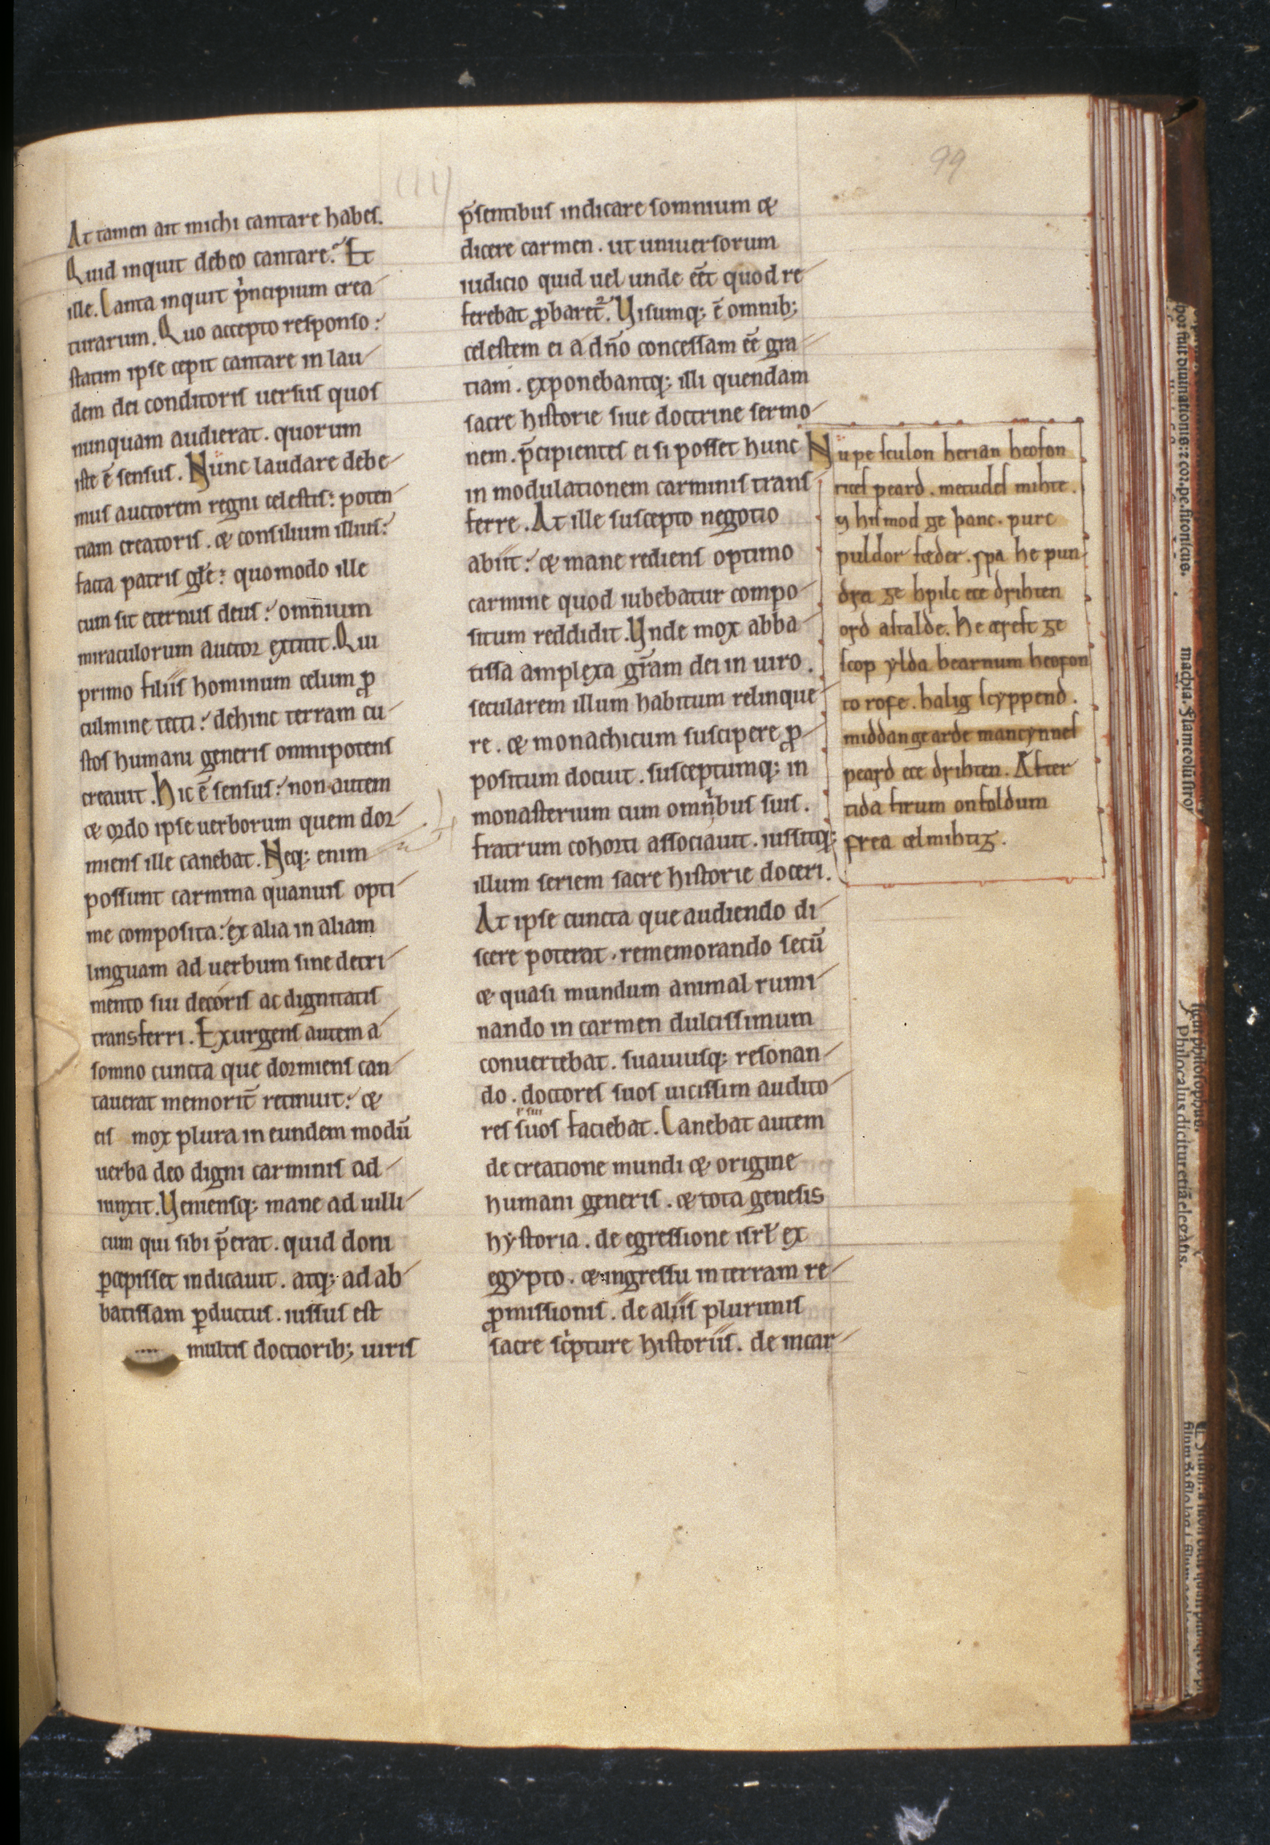 99
At tamen ait michi cantare habeſ.
Quid inquit debeo cantare? Et
ille. Canta inquit p̍ncipium crea
turarum. Quo accepto reſponſo:
ſtatim ipſe cepit cantare in lau
dem dei conditoriſ uerſuſ quoſ
nunquam audierat. quorum
iſte ē ſenſuſ. Nunc laudare debe
muſ auctorem regni celeſtiſ: poten
tiam creatoriſ. & conſilium illiuſ:
facta patriſ gl̄e: quomodo ille
cum ſit eternuſ deuſ: omnium
miraculorum auctor extitit. Qui
primo filiiſ hominum celum ꝓ
culmine tecti: dehinc terram cu
ſtoſ humani generiſ omnipotenſ
creauit. Hic ē ſenſuſ: non autem
& ordo ipſe uerborum quem dor
mienſ ille canebat. Neq; enim
poſſunt carmina quamuiſ opti
me compoſita: ex alia in aliam
linguam ad uerbum ſine detri
mento ſui decoriſ ac dignitatiſ
transferri. Exurgenſ autem a
ſomno cuncta que dormienſ can
tauerat memorit̄ retinuit: &
eiſ mox plura in eundem modū
uerba deo digni carminiſ ad
iunxit. Uenienſq; mane ad uilli
cum qui ſibi p̄erat. quid doni
ꝑcepiſſet indicauit. atq; ad ab
batiſſam ꝑductuſ. iuſſuſ eſt
multiſ doctiorib; uiriſ
p̄ſentibuſ indicare ſomnium &
dicere carmen. ut uniuerſorum
iudicio quid uel unde eēt quod re
ferebat ꝓbaret᷑. Uiſumq; ē omnib;
celeſtem ei a dn̄o conceſſam eē gra
tiam. exponebantq; illi quendam
ſacre hiſtorie ſiue doctrine ſermo
nem. p̄cipienteſ ei ſi poſſet hunc
in modulationem carminiſ tranſ
ferre. At ille ſuſcepto negotio
abiit: & mane redienſ optimo
carmine quod iubebatur compo
ſitum reddidit. Unde mox abba
tiſſa amplexa gr̄am dei in uiro.
ſecularem illum habitum relinque
re. & monachicum ſuſcipere ꝓ
poſitum docuit. ſuſceptumq; in
monaſterium cum omnibuſ ſuiſ.
fratrum cohorti aſſociauit. iuſſitq;
illum ſeriem ſacre hiſtorie doceri.
At ipſe cuncta que audiendo di
ſcere poterat. rememorando ſecū
& quaſi mundum animal rumi
nando in carmen dulciſſimum
conuertebat. ſuauiuſq; reſonan
do. doctoreſ ſuoſ uiciſſim audito
reſ ſuoſ faciebat. Canebat autem
de creatione mundi & origine
humani generiſ. & tota genesis
hyſtoria. de egreſſione iſrl̄ ex
egypto. & ingreſſu in terram re
ꝓmiſſioniſ. de aliiſ plurimiſ
ſacre ſc̍pture hiſtoriiſ. de incar
Nu ƿe ſculon herian heofon
riceſ ƿeard. metudeſ mihte.
⁊ hiſ mod ge þanc. ƿurc
ƿuldor fæder. ſƿa he ƿun
dra ge hƿilc ece drihten
ord aſtalde. he æreſt ge
ſcop ylda bearnum heofon
to rofe. halig ſcyppend.
middangearde mancynneſ
ƿeard ece drihten. Æfter
tida firum on foldum
frea ælmihtig.